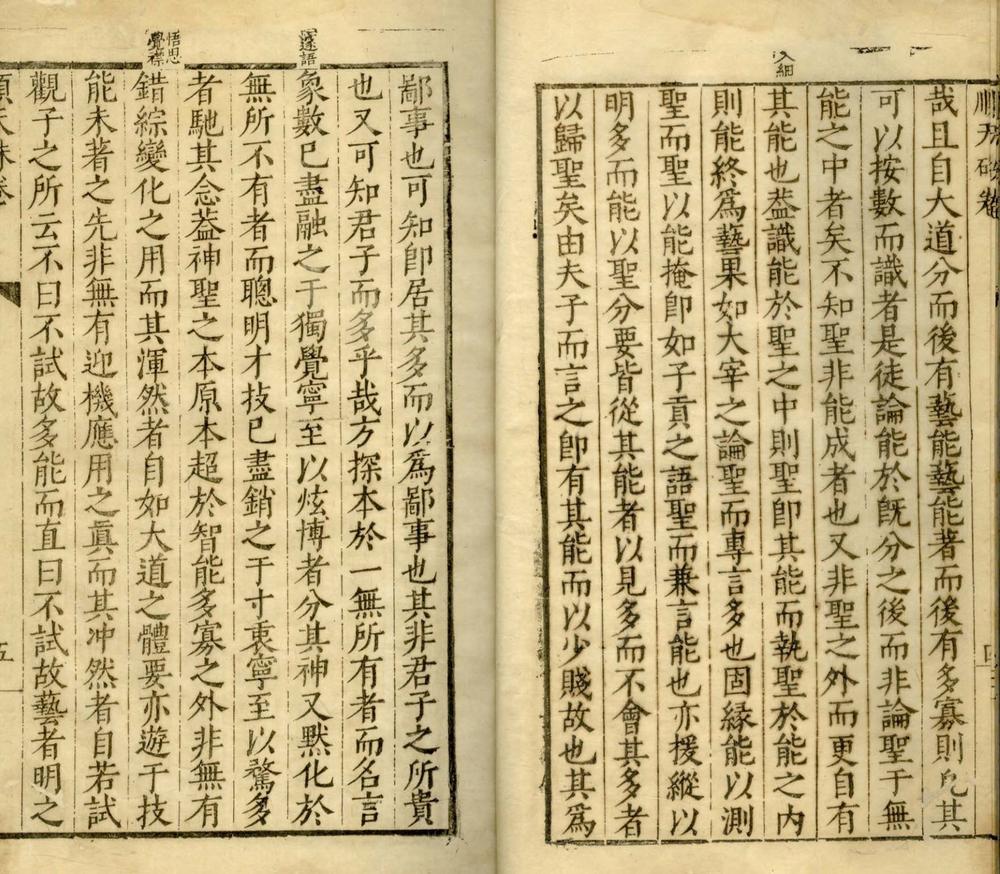 順天硃卷
哉且自大道分而後有藝能藝能著而後有多寡則凡其
可以按數而識者是徒論能於既分之後而非論聖于無
能之中者矣不知聖非能成者也又非聖之外而更自有
其能也葢識能於聖之中則聖卽其能而執聖於能之内
則能終爲藝果如大宰之論聖而專言多也固緣能以測
聖而聖以能掩卽如子貢之語聖而兼言能也亦援縱以
明多而能以聖分要皆從其能者以見多而不會其多者
以歸聖矣由夫子而言之卽有其能而以少賤故也其爲
入細
四
鄙事也可知卽居其多而以爲鄙事也其非君子之所貴
也又可知君子而多乎哉方探本於一無所有者而名言
象數已盡融之于獨覺寧至以炫博者分其神又默化於
無所不有者而聰明才技已盡銷之于寸衷寧至以驚多
者馳其念葢神聖之本原本超於智能多寡之外非無有
錯綜變化之用而其渾然者自如大道之體要亦遊于技
能未著之先非無有迎機應用之眞而其冲然者自若試
觀子之所云不曰不試故多能而直曰不試故藝者明之
邃語
悟思
覺襟
順天硃卷
五